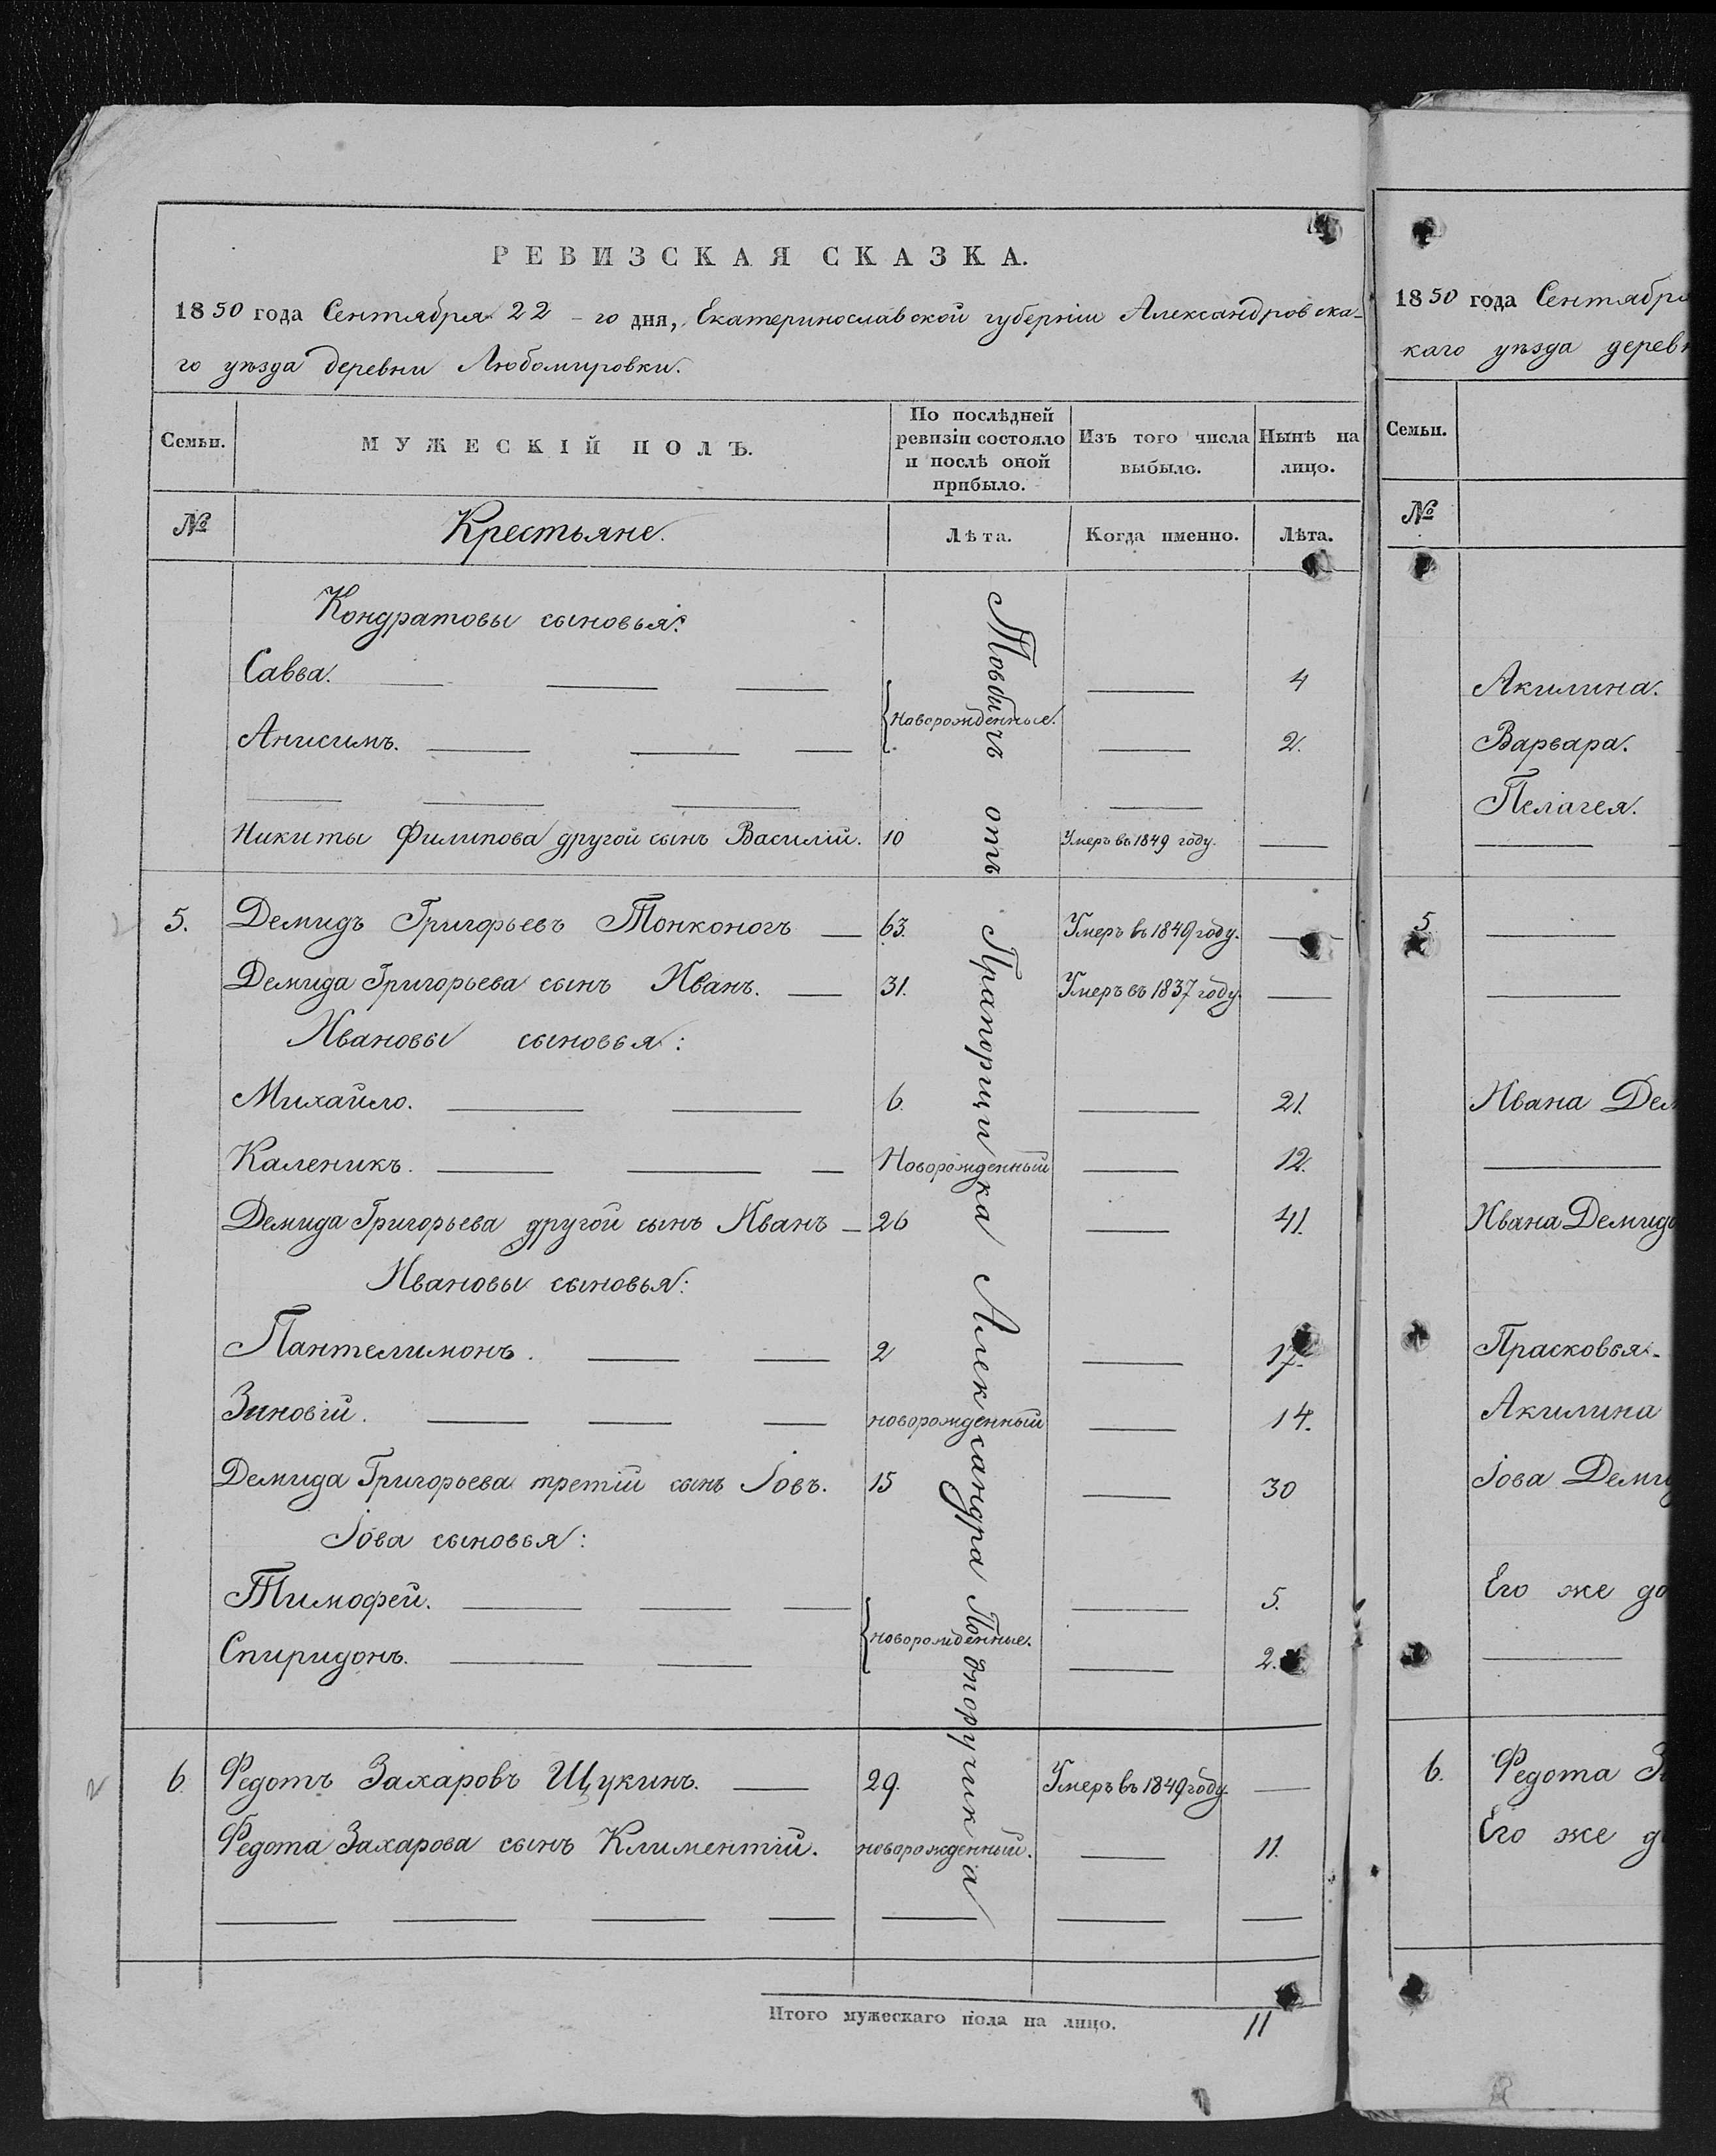 РЕВИЗСКАЯ СКАЗКА.
1850 года Сентября 22 - го дня, Екатеринославской губерніи Александровска-
го уѣзда деревни Любомировки.
Семьи.
МУЖЕСКІЙ ПОЛЪ.
По послѣдней ревизіи состояло и послѣ оной прибыло.
Изъ того числа выбыло.
Нынѣ на лицо.
№ Крестьяне. Лѣта. Когда именно. Лѣта.
Кондратовы сыновья:
Савва. 4
Новорожденные.
Анисимъ. 2.
Никиты Филипова другой сынъ Василій. 10 Умеръ въ 1849 году.
5. Демидъ Григорьевъ Тонконогъ 63. Умеръ въ 1849 году.
Демида Григорьева сынъ Иванъ. 31. Умеръ въ 1837 году.
Ивановы сыновья:
Михайло. 6. 21.
Каленикъ. Новорожденный 12.
Демида Григорьева другой сынъ Иванъ 26 41.
Ивановы сыновья:
Пантелимонъ. 2 17.
Зиновій. новорожденный 14.
Демида Григорьева третій сынъ Іовъ. 15 30
Іова сыновья:
Тимофей. 5.
новорожденные.
Спиридонъ. 2.
6. Федотъ Захаровъ Щукинъ. 29. Умеръ въ 1849 году.
Федота Захарова сынъ Климентій. новорожденный. 11.
отъ Прапорщика Александра Подпоручика
Итого мужескаго пола на лицо. 11
1850 года Сентября
каго уѣзда дерев
Семьи.
№
Акилина.
Варвара.
Пелагея.
5
Ивана Дем
Ивана Демидо
Прасковья.
Акилина
Іова Демид
Его же до
6. Федота За
Его же д